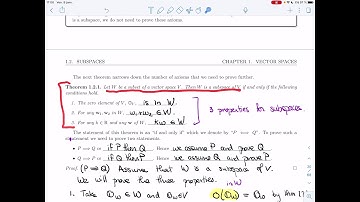 is a subspace, we do not need to prove these axioms.
1.2. SUBSPACES CHAPTER 1. VECTOR SPACES
The next theorem narrows down the number of axioms that we need to prove further.
Theorem 1.2.1. Let W be a subset of a vector space V. Then W is a subspace of V if and only if the following
conditions hold.
1. The zero element of V, 0v is in W.
2. For any w1, w2 in W, w1+w2 ∈ W.
3. For any k ∈ R and any w ∈ W, kw ∈ W
3 properties for subspaces.
The statement of this theorem is an "if and only if" which we denote by "P ⟺ Q". To prove such a
statement we need to prove two statements:
• P ⟹ Q = if P then Q Hence we assume P and prove Q
• Q ⟹ P = if Q then P Hence we assume Q and prove P
Proof. (P ⟹ Q) Assume that W is a subspace of V.
We will prove the three properties.
in W
1. Take 0w ∈ W and 0v ∈ V